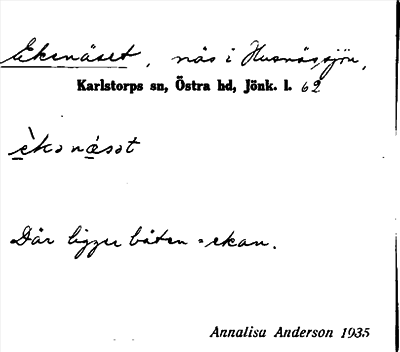 Ekenäset, näs i Husnässjön,
Karlstorps sn, Östra hd, Jönk. l. 62
èkə nǽsət
Där ligger båten = ekan.
Annalisa Anderson 1935